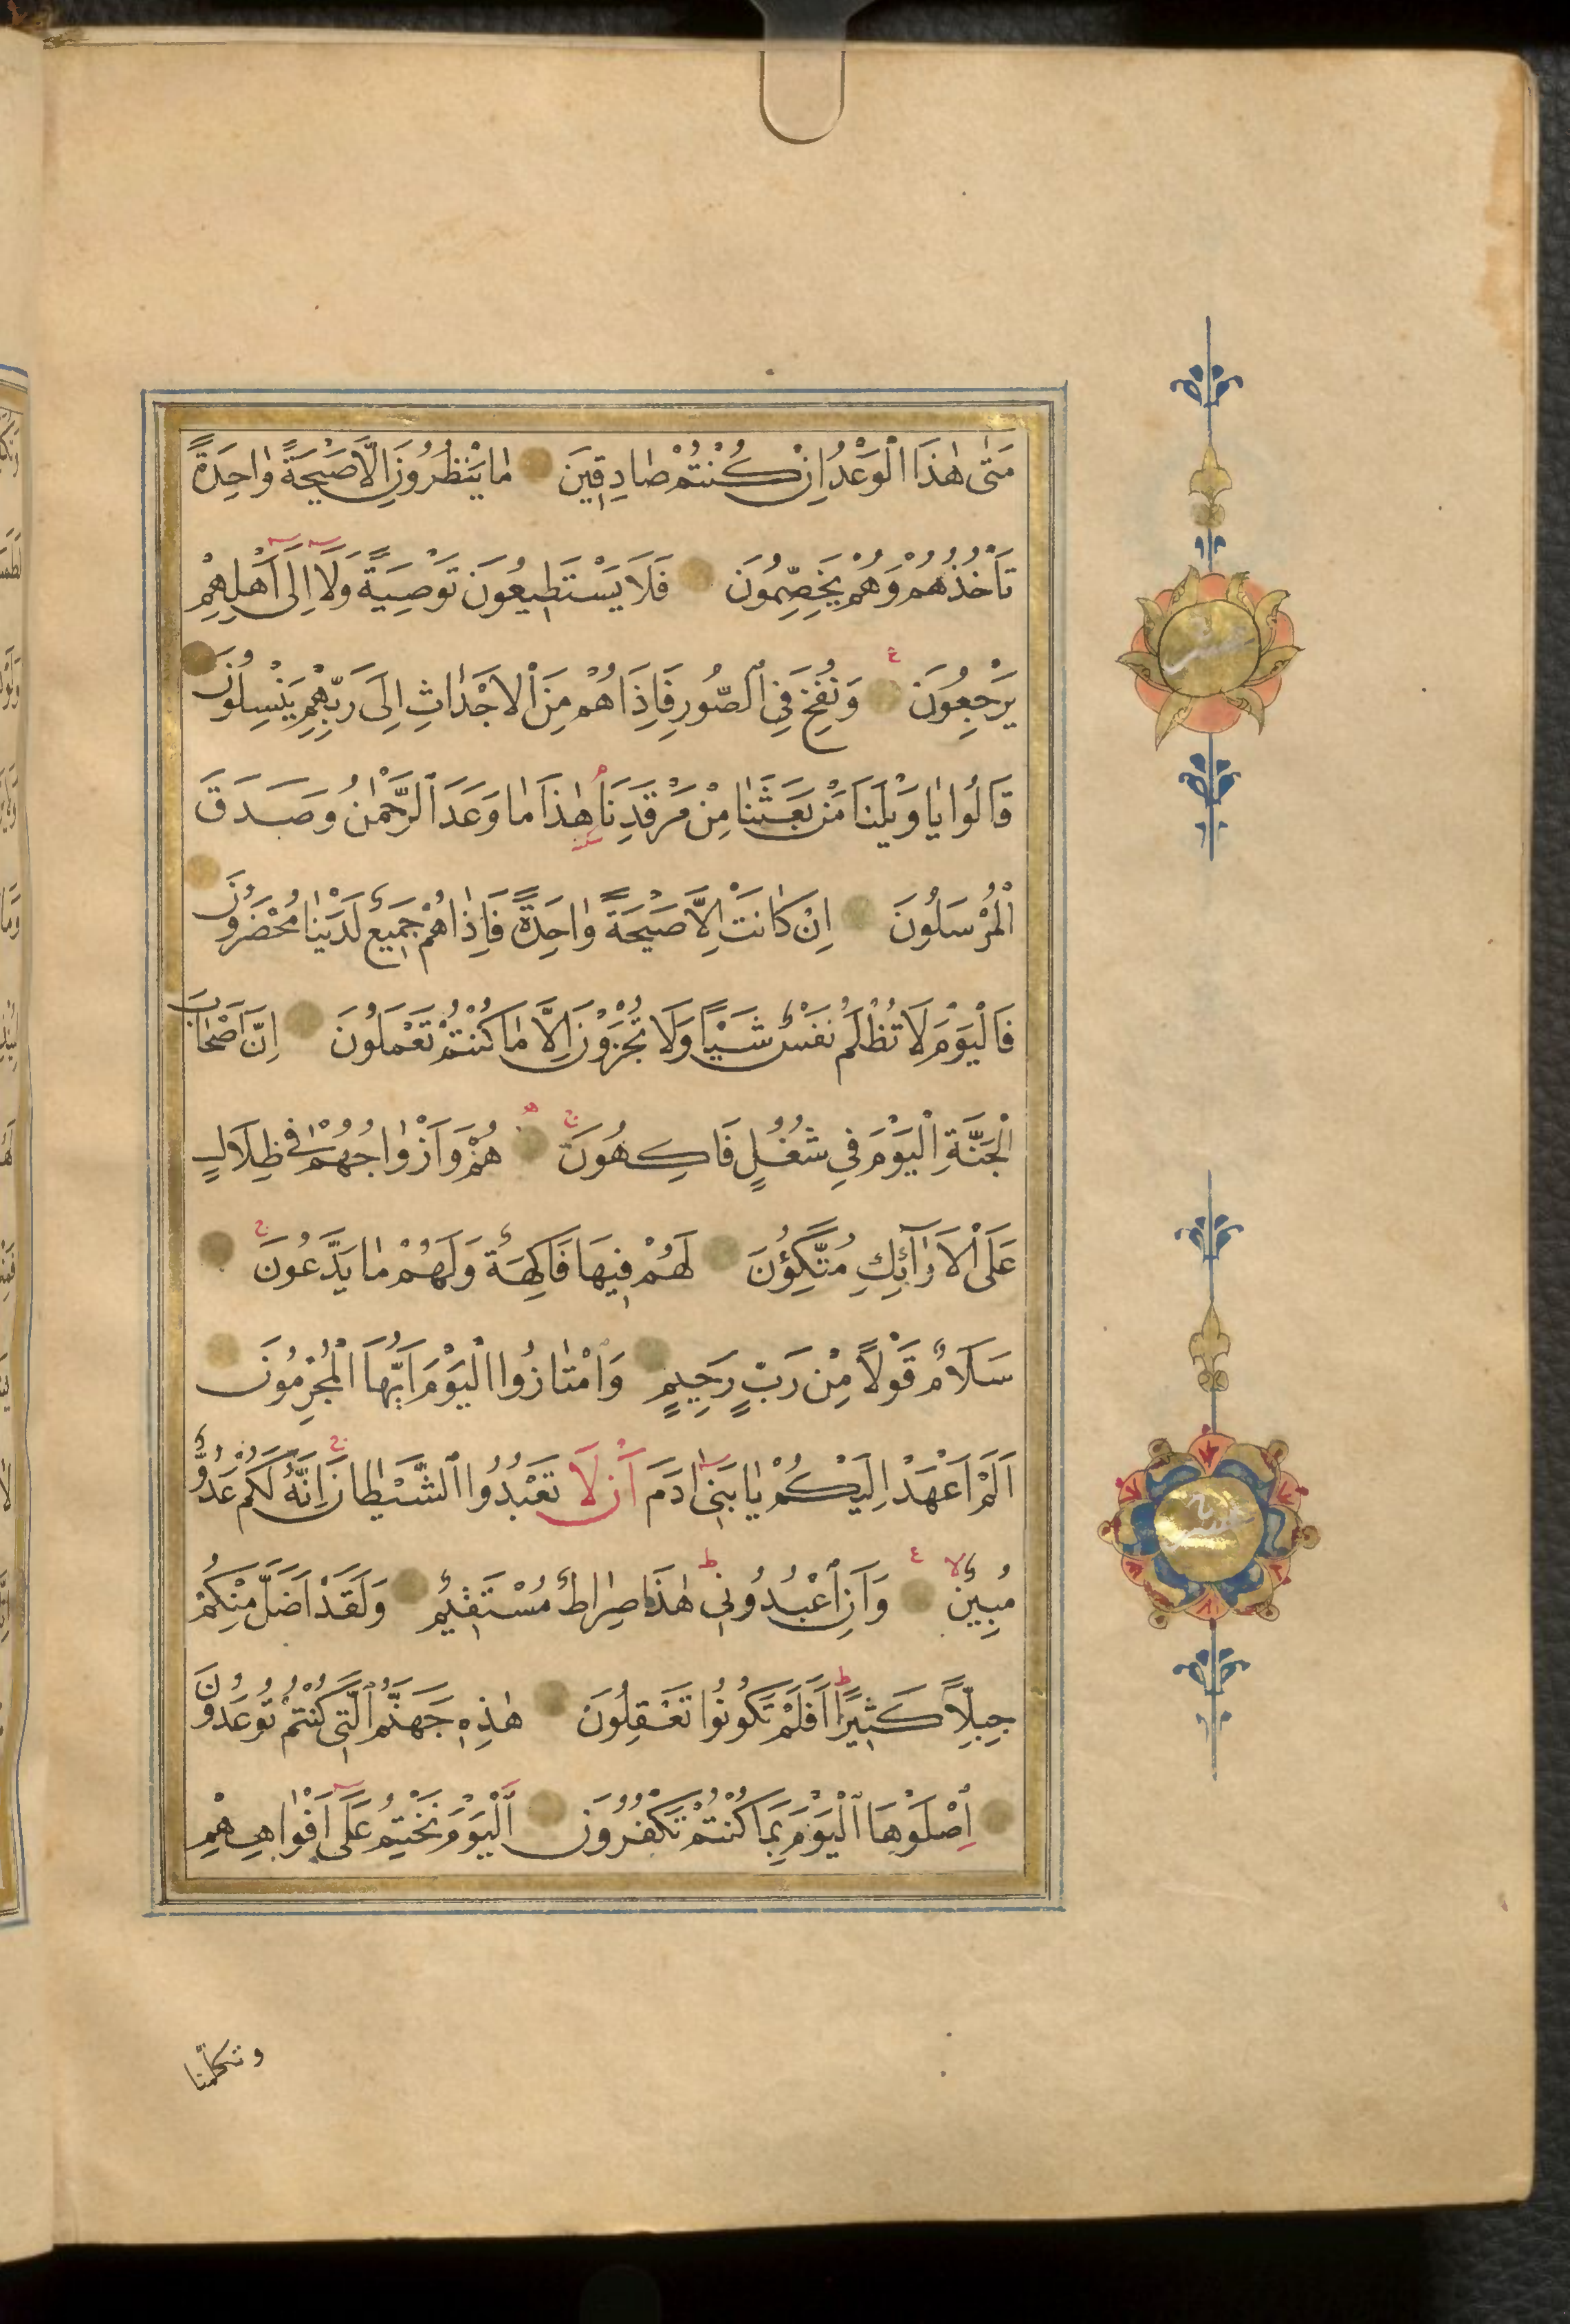 مَتٰى هٰذَا الْوَعْدُ اِنْ كُنْتُمْ صٰادِقِينَ مٰا يَنْظُرُونَ اِلَّا صَيْحَةً وٰاحِدَةً
تَأْخُذُهُمْ وَهُمْ يَخِصِّمُونَ فَلَا يَسْتَطِيعُونَ تَوْصِيَةً وَلَا اِلَى اَهْلِهِمْ
يَرْجِعُونَ وَنُفِخَ فِي الصُّورِ فَاِذَا هُمْ مِنَ الْاَجْدٰاثِ اِلَى رَبِّهِمْ يَنْسِلُونَ
قَالُوا يٰا وَيْلَنَا مَنْ بَعَثَنٰا مِنْ مَرْقَدِنَا هٰذَا مٰا وَعَدَ الرَّحْمٰنُ وَصَدَقَ
الْمُرْسَلُونَ اِنْ كٰانَتْ اِلَّا صَيْحَةً وٰاحِدَةً فَاِذٰا هُمْ جَمِيعٌ لَدَيْنٰا مُحْضَرُونَ
فَالْيَوْمَ لَا تُظْلَمُ نَفْسٌ شَيْئًا وَلَا تُجْزَوْنَ اِلَّا مٰا كُنْتُمْ تَعْمَلُونَ اِنَّ اَصْحٰابَ
الْجَنَّةِ الْيَوْمَ فِي شُغُلٍ فَاكِهُونَ هُمْ وَاَزْوٰاجُهُمْ فِي ظِلَالٍ
عَلَى الْاَرٰآئِكِ مُتَّكِؤُنَ لَهُمْ فِيهَا فَاكِهَةٌ وَلَهُمْ مٰا يَدَّعُونَ
سَلَامٌ قَوْلًا مِنْ رَبٍّ رَحِيمٍ وَامْتٰازُوا الْيَوْمَ اَيُّهَا الْمُجْرِمُونَ
اَلَمْ اَعْهَدْ اِلَيْكُمْ يٰا بَنِي اٰدَمَ اَنْ لَا تَعْبُدُوا الشَّيْطٰانَ اِنَّهُ لَكُمْ عَدُوٌّ
مُبِينٌ وَاَنِ اعْبُدُونِي هٰذَا صِرٰاطٌ مُسْتَقِيمٌ وَلَقَدْ اَضَلَّ مِنْكُمْ
جِبِلًّا كَثِيرًا اَفَلَمْ تَكُونُوا تَعْقِلُونَ هٰذِهِ جَهَنَّمُ الَّتِي كُنْتُمْ تُوعَدُونَ
اِصْلَوْهَا الْيَوْمَ بِمَا كُنْتُمْ تَكْفُرُونَ اَلْيَوْمَ نَخْتِمُ عَلَى اَفْوٰاهِهِمْ
وتكلمنا
عشر
عشر